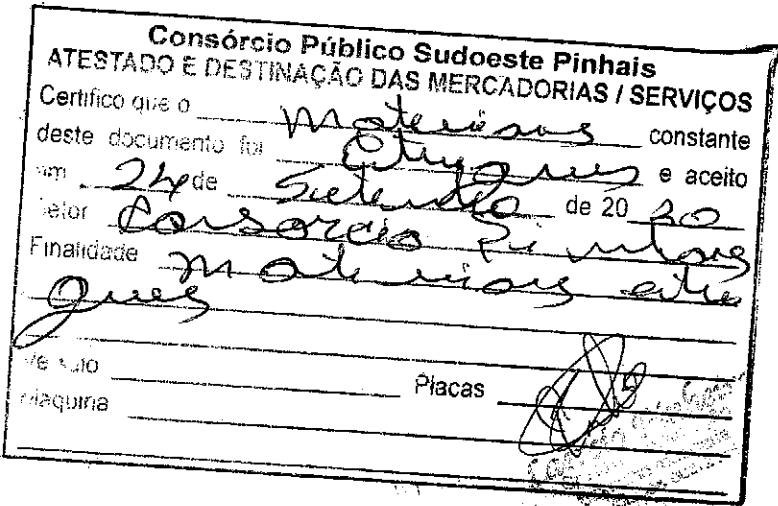 Consórcio Público Sudoeste Pinhais
ATESTADO E DESTINAÇÃO DAS MERCADORIAS / SERVIÇOS
Certifico que o Materiais constante
deste documento foi e aceito
em 24 de Setembro de 2020
Setor Consorcio Pinhais
Finalidade Materiais entre
gues
Veículo Placas
Máquina